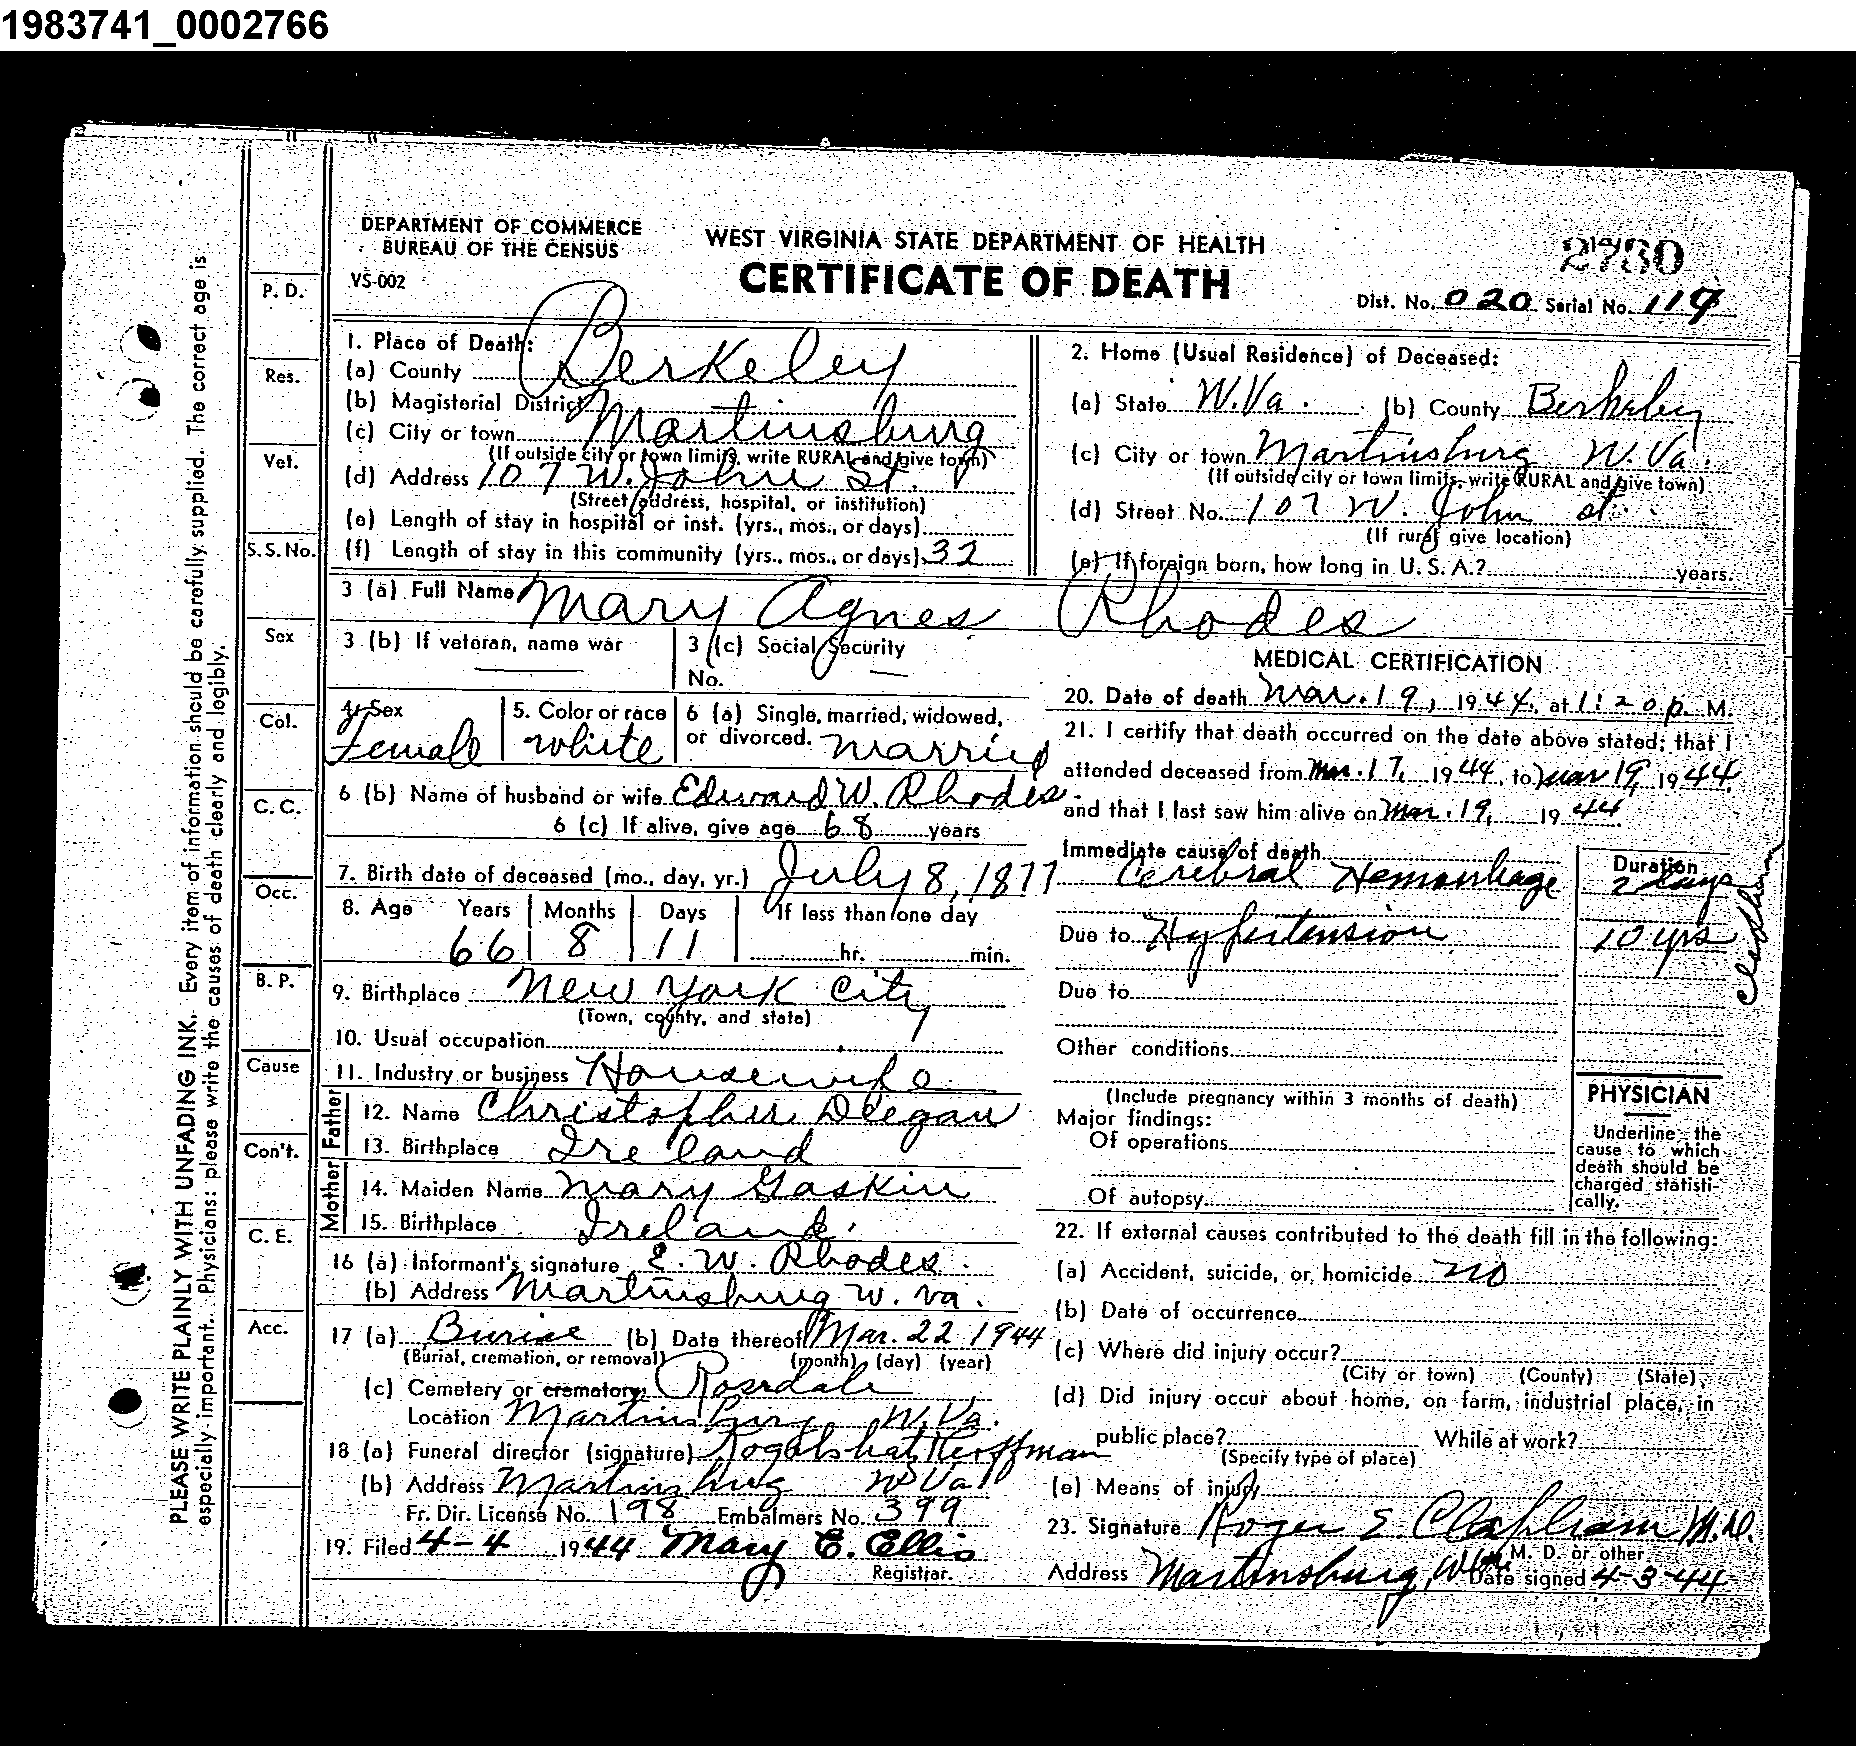 1983741_0002766
DEPARTMENT OF COMMERCE
BUREAU OF THE CENSUS
VS-002
WEST VIRGINIA STATE DEPARTMENT OF HEALTH
CERTIFICATE OF DEATH
2780
Dist. No. 020 Serial No. 119
PLEASE WRITE PLAINLY WITH UNFADING INK. Every item of information should be carefully supplied. The correct age is
especially important. Physicians: please write the causes of death clearly and legibly.
P. D.
Res.
Vet.
S.S. No.
Sex
Col.
C. C.
Occ.
B. P.
Cause
Con't.
C. E.
Acc.
1. Place of Death:
(a) County Berkeley
(b) Magisterial District
(c) City or town Martinsburg
(If outside city or town limits, write RURAL and give town)
(d) Address 107 W. John St.
(Street address, hospital, or institution)
(e) Length of stay in hospital or inst. (yrs., mos., or days)
(f) Length of stay in this community (yrs., mos., or days) 32
2. Home (Usual Residence) of Deceased:
(a) State W. Va. (b) County Berkeley
(c) City or town Martinsburg W. Va.
(If outside city or town limits, write RURAL and give town)
(d) Street No. 107 W. John st.
(If rural give location)
(e) If foreign born, how long in U. S. A.? years.
3 (a) Full Name Mary Agnes Rhodes
3 (b) If veteran, name war
3 (c) Social Security
No.
4. Sex
Female
5. Color or race
White
6 (a) Single, married, widowed,
or divorced. married
6 (b) Name of husband or wife Edward W. Rhodes.
6 (c) If alive, give age 68 years
7. Birth date of deceased (mo., day, yr.) July 8, 1877
8. Age Years Months Days If less than one day
66 8 11 hr. min.
9. Birthplace New York City
(Town, county, and state)
10. Usual occupation
11. Industry or business Housewife
Father
12. Name Christopher Deegan
13. Birthplace Ireland
Mother
14. Maiden Name Mary Gaskin
15. Birthplace Ireland.
16 (a) Informant's signature E. W. Rhodes.
(b) Address Martinsburg W. Va.
17 (a) Burial (b) Date thereof Mar. 22 1944
(Burial, cremation, or removal) (month) (day) (year)
(c) Cemetery or crematory Rosedale
Location Martinsburg, W. Va.
18 (a) Funeral director (signature)
(b) Address Martinsburg W Va
Fr. Dir. License No. 198 Embalmers No. 399
19. Filed 4-4 1944 Mary E. Ellis
Registrar.
MEDICAL CERTIFICATION
20. Date of death Mar. 19, 1944, at 1:20 p. M.
21. I certify that death occurred on the date above stated; that I
attended deceased from Mar. 17, 1944, to Mar 19, 1944
and that I last saw him alive on Mar. 19, 1944
Immediate cause of death
Cerebral Hemorrhage
Duration
2 days
Due to Hypertension 10 yrs
Due to
Other conditions
(Include pregnancy within 3 months of death)
Major findings:
Of operations
Of autopsy
PHYSICIAN
Underline the
cause to which
death should be
charged statisti-
cally.
22. If external causes contributed to the death fill in the following:
(a) Accident, suicide, or homicide no
(b) Date of occurrence
(c) Where did injury occur?
(City or town) (County) (State)
(d) Did injury occur about home, on farm, industrial place, in
public place? While at work?
(Specify type of place)
(e) Means of injury
23. Signature Roger E Clapham M.D.
M. D. or other
Address Martinsburg, W Va Date signed 4-3-44